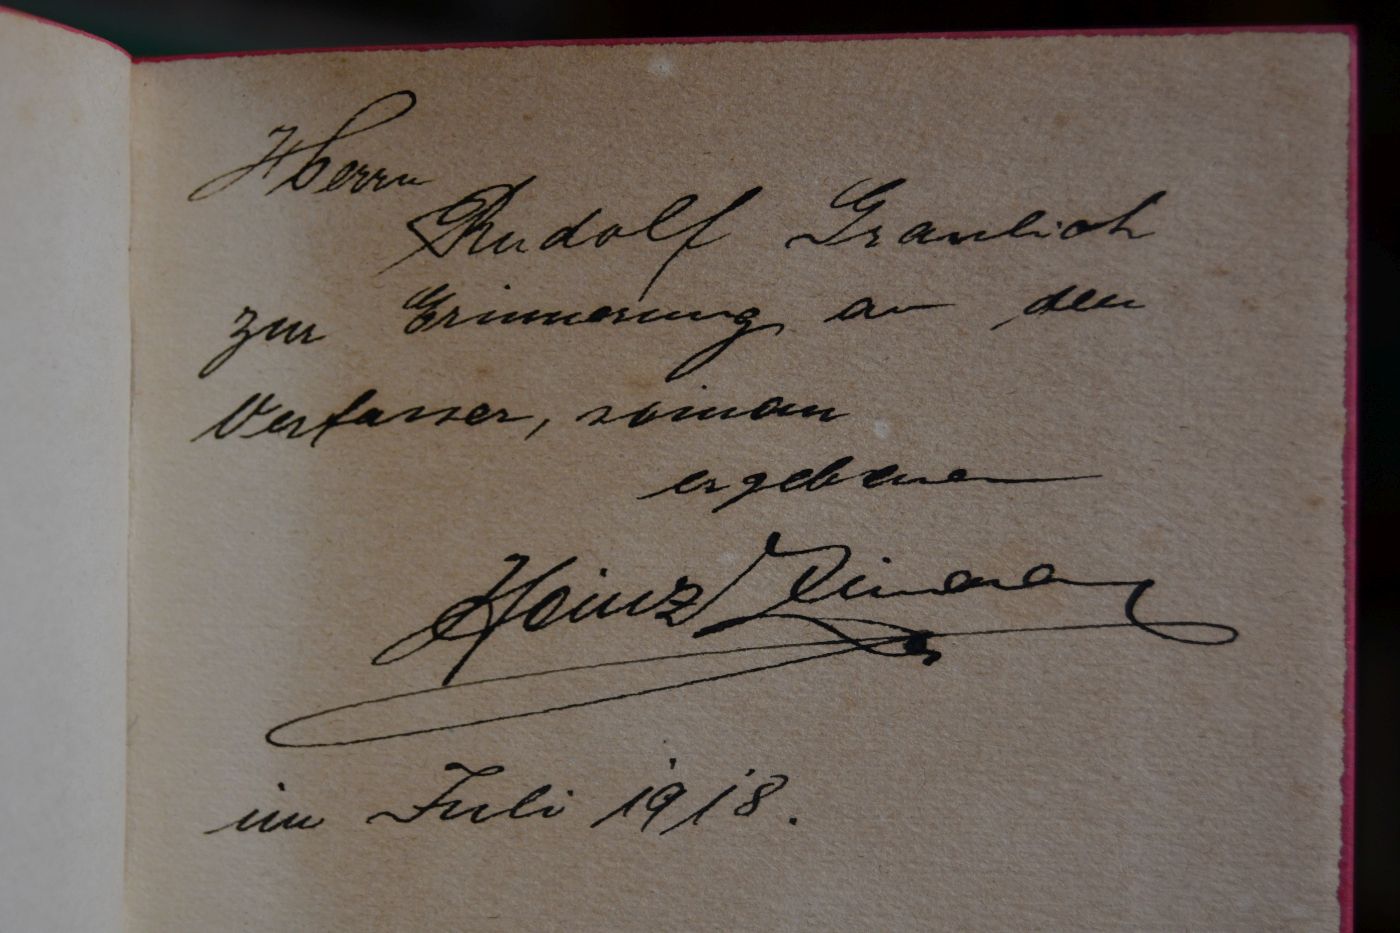 Herrn
Rudolf Graulich
zur Erinnerung an den
Verfasser, seinen
ergebenen
Heinz
im Juli 1918.